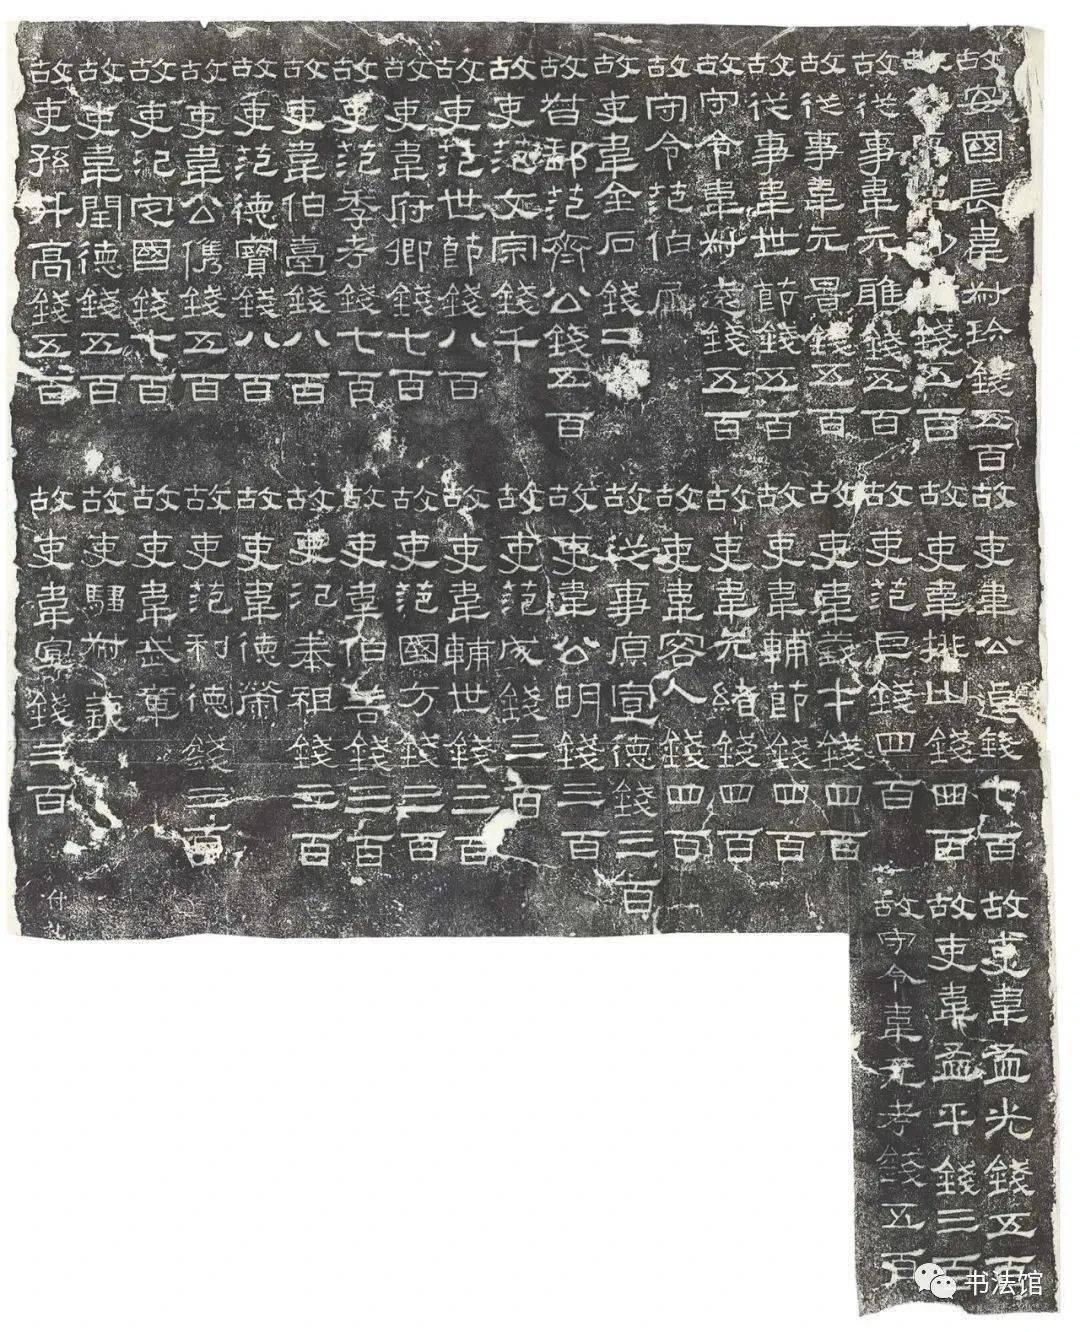 故安國長韋叔珍錢五百
故從事韋少主錢五百
故從事韋元雅錢五百
故從事韋元景錢五百
故從事韋世節錢五百
故守令韋叔遠錢五百
故守令范伯犀
故吏韋金石錢二百
故督郵范齊公錢五百
故吏范文宗錢千
故吏范世節錢八百
故吏韋府卿錢七百
故吏范季考錢七百
故吏韋伯臺錢八百
故吏范德寶錢八百
故吏韋公儁錢五百
故吏氾定國錢七百
故吏韋閏德錢五百
故吏孫升高錢五百
故吏韋公逴錢七百
故吏韋排山錢四百
故吏范巨錢四百
故吏韋義才錢四百
故吏韋輔節錢四百
故吏韋元緒錢四百
故吏韋容人錢四百
故從事原宣德錢三百
故吏韋公明錢三百
故吏范成錢三百
故吏韋輔世錢三百
故吏范國方錢三百
故吏韋伯善錢三百
故吏氾奉祖錢三百
故吏韋德榮
故吏范利德錢三百
故吏韋武章
故吏騶叔義
故吏韋宣錢三百
故吏韋孟光錢五百
故吏韋孟平錢三百
故守令韋元考錢五百
书法馆